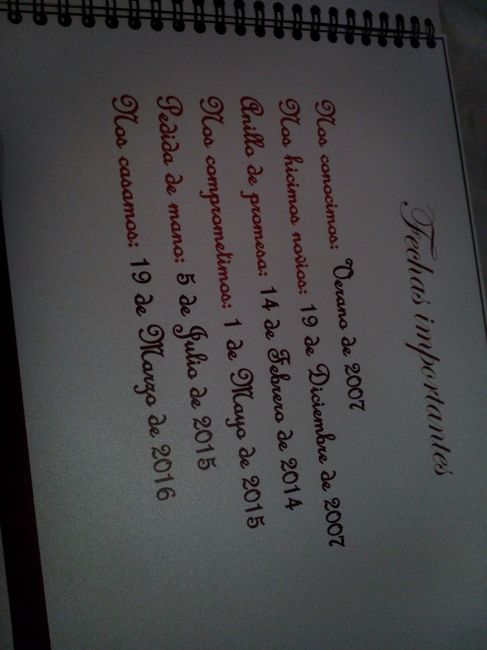 Fechas importantes
Nos conocimos: Verano de 2007
Nos hicimos novios: 19 de Diciembre de 2007
Anillo de promesa: 14 de Febrero de 2014
Nos comprometimos: 1 de Mayo de 2015
Pedida de mano: 5 de Julio de 2015
Nos casamos: 19 de Marzo de 2016